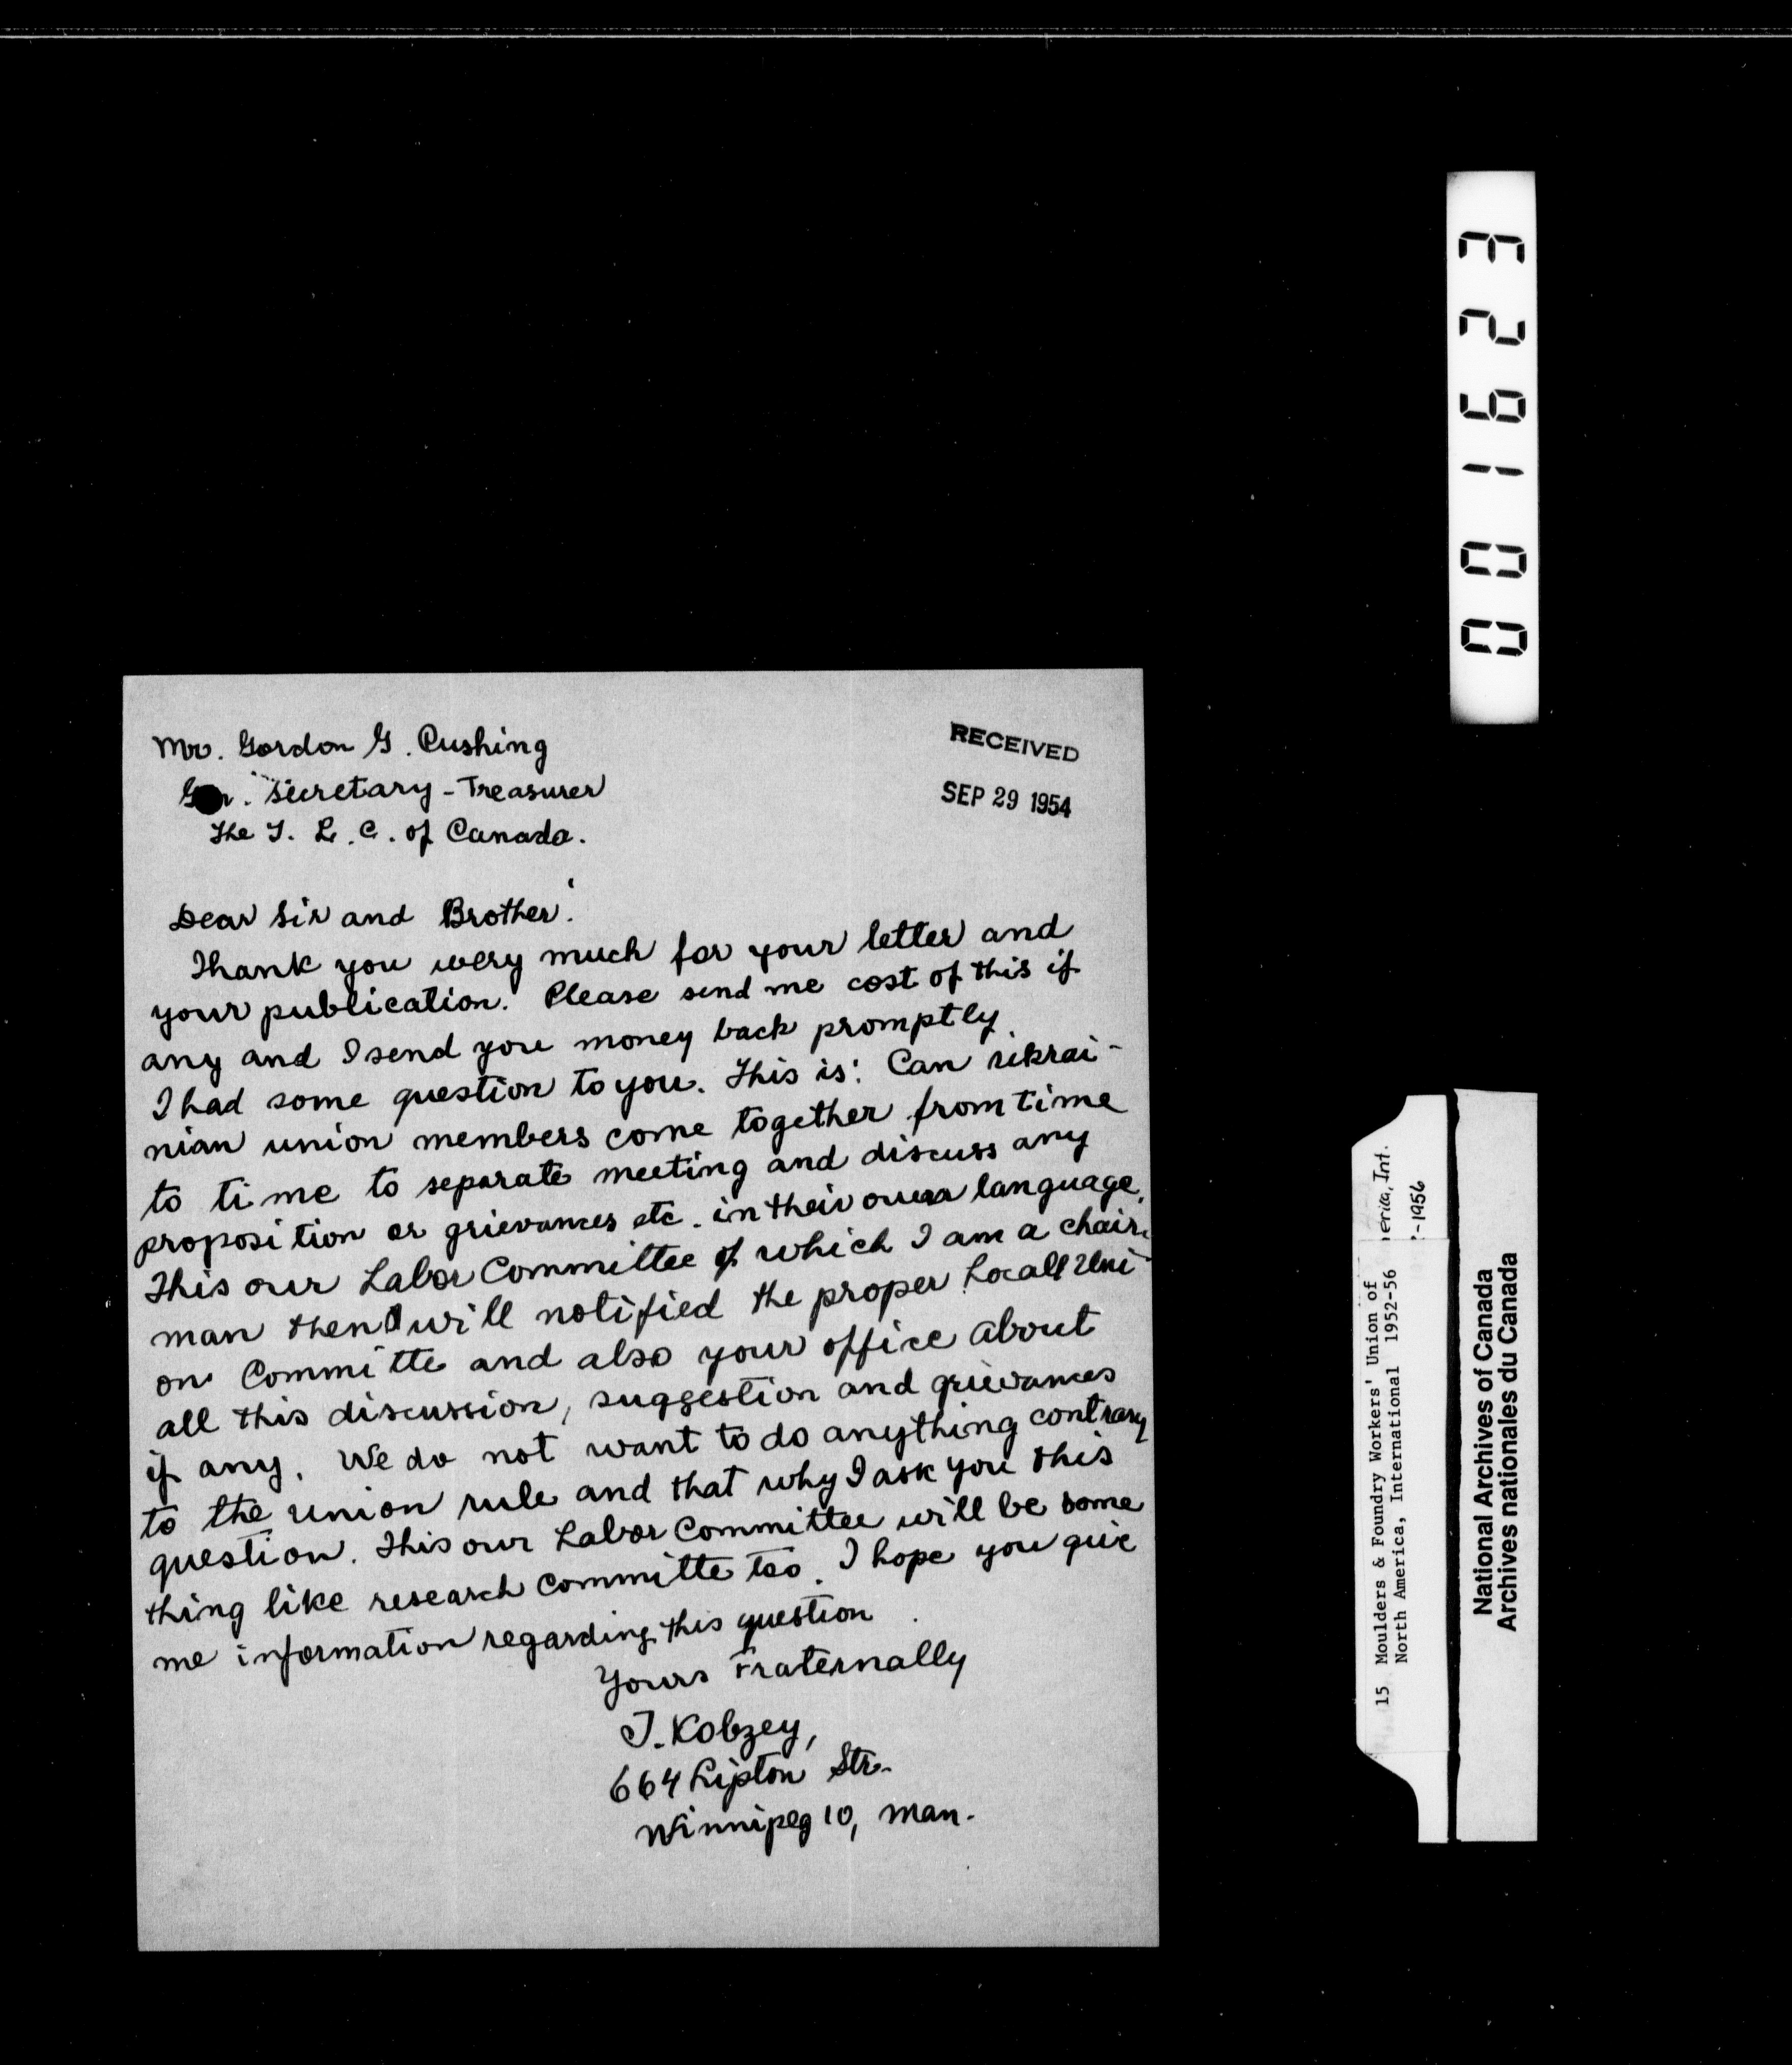 Mr. Gordon G. Cushing
RECEIVED
Secretary-Treasurer
SEP 29 1954
The T. L. C. of Canada.
Dear Sir and Brother:
Thank you wery much for your letter and
your publication. Please send me cost of this if
any and I send you money back promptly.
I had some question to you. This is: Can Ukrai-
nian union members come together from time
to time to separate meeting and discuss any
proposition or grievances etc. in their own language.
This our Labor Committee of which I am a chair-
man then will notified the proper Locall Uni-
on Committe and also your office about
all this discussion, suggestion and grievances
if any. We do not want to do anything contrary
to the union rule and that why I ask you this
question. This our Labor Committee will be some
thing like research Committe too. I hope you give
me information regarding this question
Yours Fraternally
T. Kobzey,
664 Lipton Str.
Winnipeg 10, Man.
001623
erica, Int.
-1956
15 Moulders & Foundry Workers' Union of
North America, International 1952-56
National Archives of Canada
Archives nationales du Canada